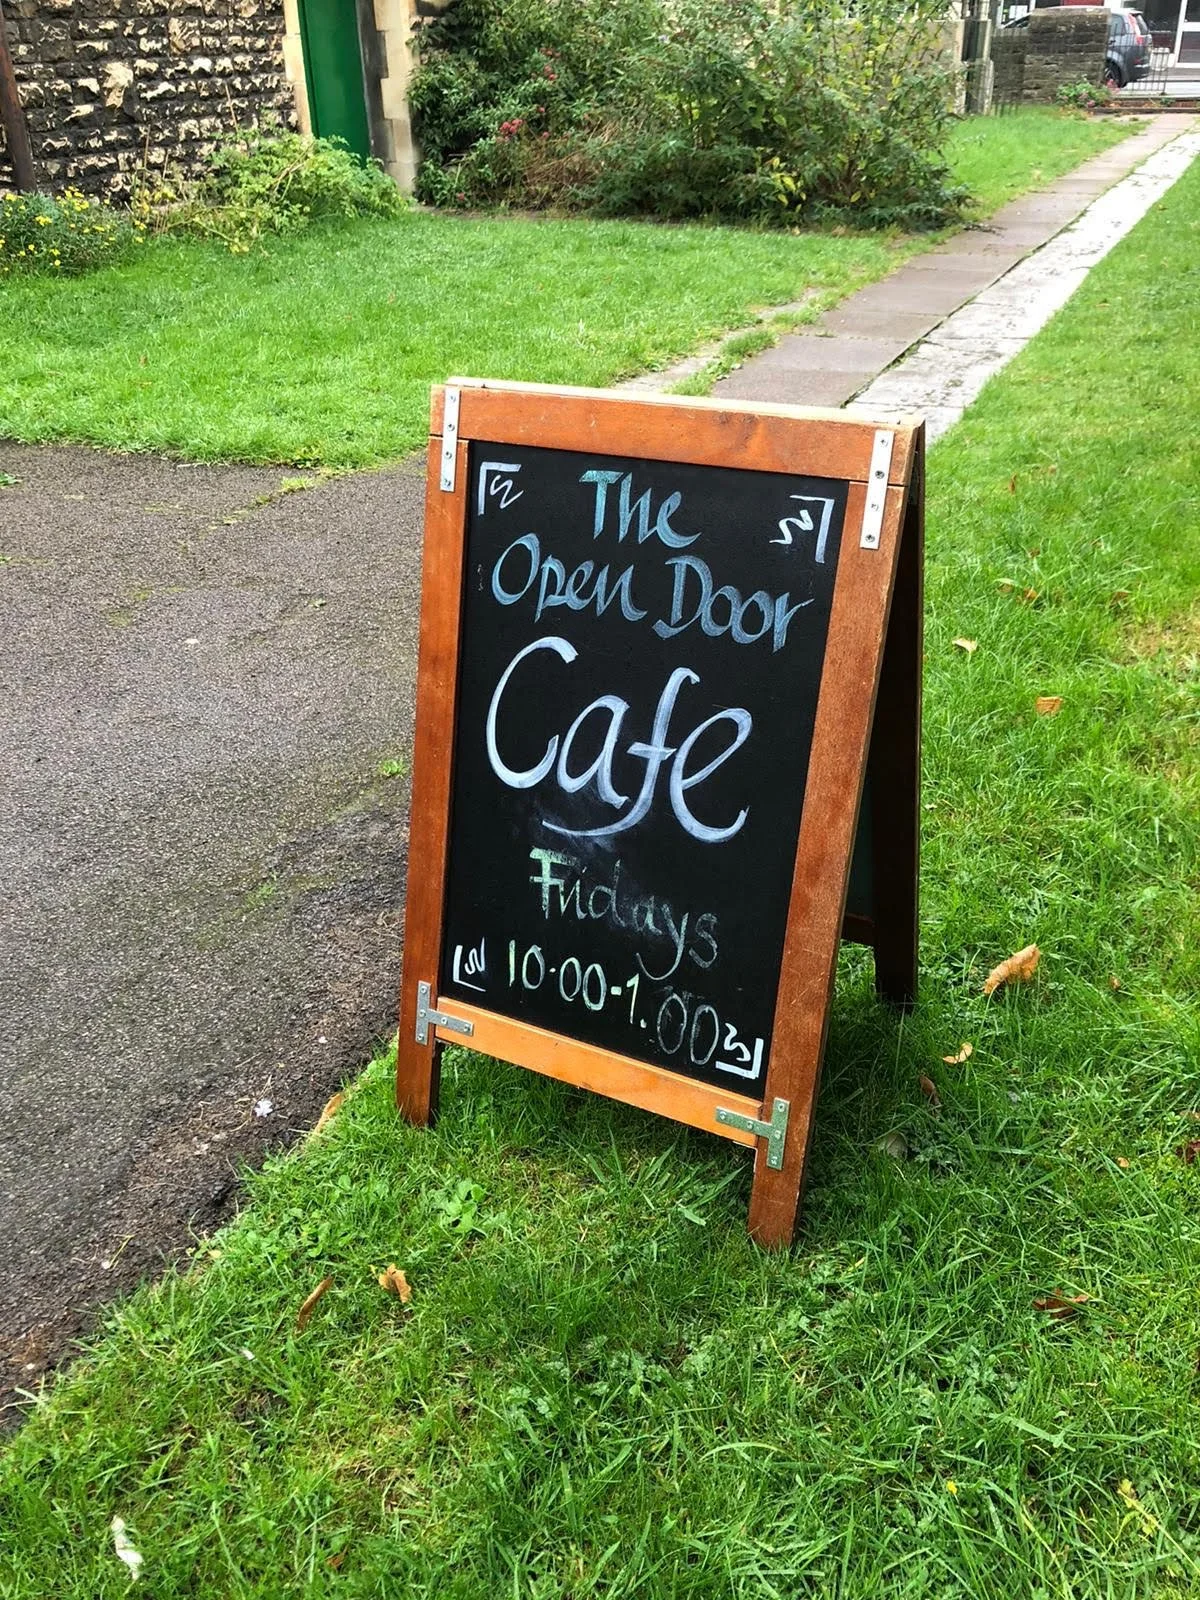 The
Open Door
Cafe
Fridays
10.00-1.00